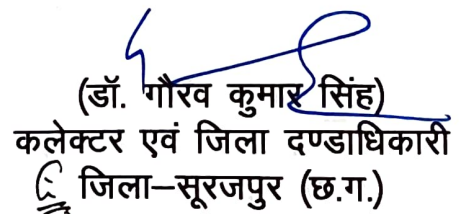 (डॉ. गौरव कुमार सिंह)
कलेक्टर एवं जिला दण्डाधिकारी
जिला–सूरजपुर (छ.ग.)